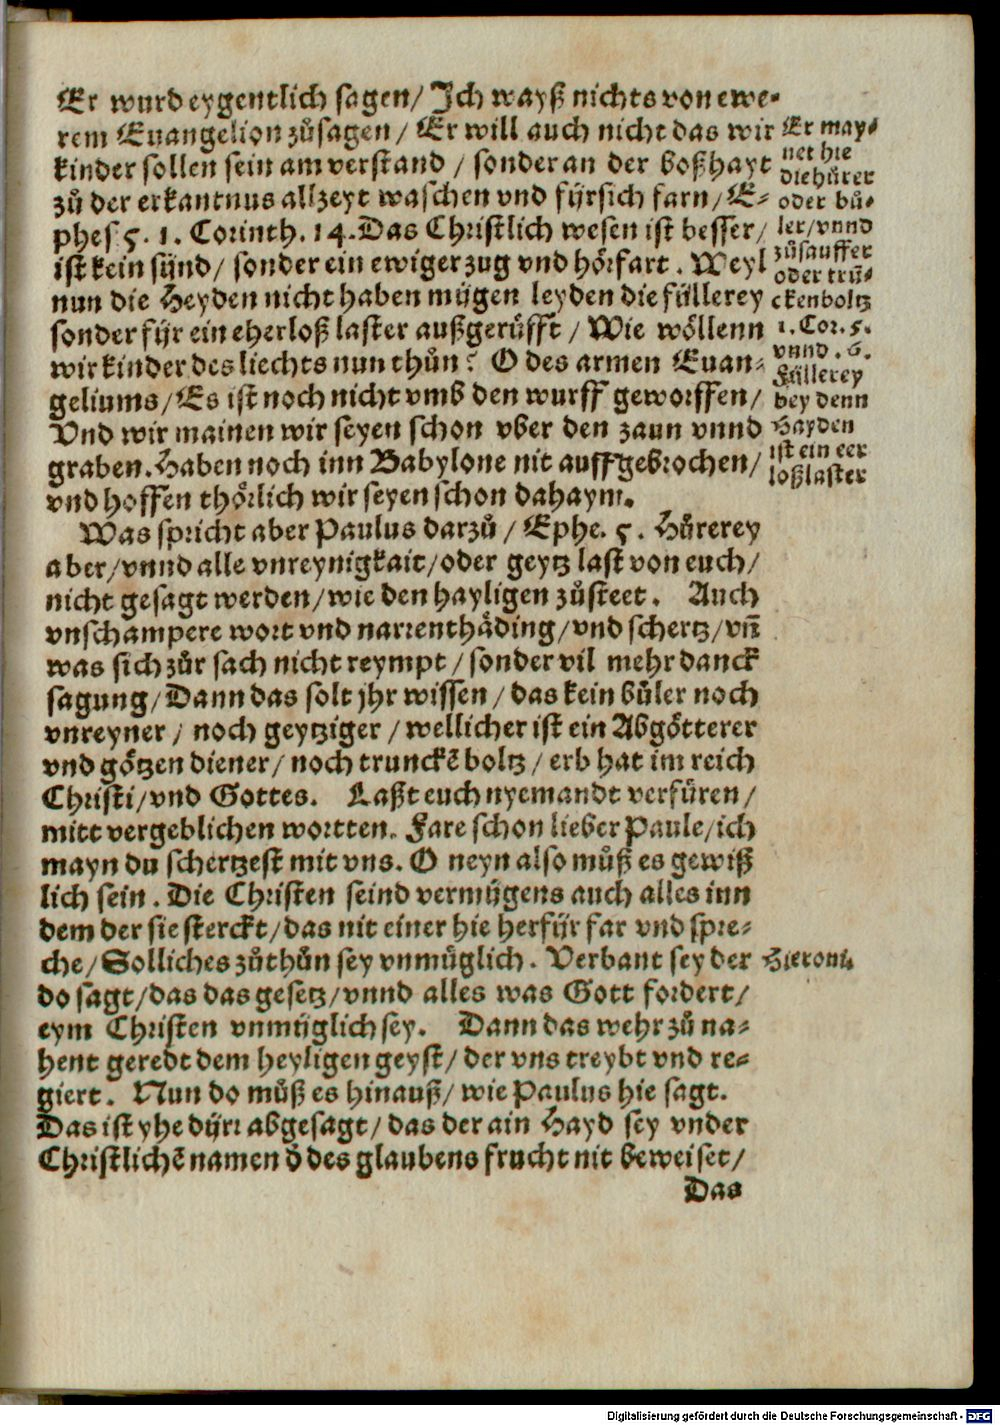 Er wurd eygentlich sagen/ Ich wayß nichts von ewe-
rem Euangelion zůsagen/ Er will auch nicht das wir
kinder sollen sein am verstand / sonder an der boßhayt
zů der erkantnus allzeyt waschen vnd fürsich farn/ E-
phes 5. 1. Corinth. 14. Das Christlich wesen ist besser/
ist kein sünd/ sonder ein ewiger zug vnd hörfart. Weyl
nun die Heyden nicht haben mügen leyden die füllerey
sonder für ein eherloß laster außgerüfft / Wie wöllenn
wir kinder des liechts nun thůn? O des armen Euan-
geliums/ Es ist noch nicht vmb den wurff geworffen/
Vnd wir mainen wir seyen schon vber den zaun vnnd
graben. Haben noch inn Babylone nit auffgebrochen/
vnd hoffen thörlich wir seyen schon dahaym.
Er may-
net hie
die hůrer
oder bů-
ler/vnnd
zůsauffer
oder trů-
ckenboltz
1. Cor. 5.
vnnd . 6.
Füllerey
bey denn
Hayden
ist ein eer
loß laster
Was spricht aber Paulus darzů / Ephe. 5. Hůrerey
aber/vnnd alle vnreynigkait/oder geytz last von euch/
nicht gesagt werden/wie den hayligen zůsteet. Auch
vnschampere wort vnd narrenthäding/vnd schertz/vñ
was sich zůr sach nicht reympt/sonder vil mehr danck
sagung/Dann das solt jhr wissen/das kein bůler noch
vnreyner/ noch geytziger/wellicher ist ein Abgötterer
vnd götzen diener/noch trunckē boltz/erb hat im reich
Christi/vnd Gottes. Laßt euch nyemandt verfüren/
mitt vergeblichen wortten. Fare schon lieber Paule/ich
mayn du schertzest mit vns. O neyn also můß es gewiß
lich sein. Die Christen seind vermügens auch alles inn
dem der sie sterckt/das nit einer hie herfür far vnd spre-
che/Solliches zůthůn sey vnmüglich. Verbant sey der
Hieroni.
do sagt/das das gesetz/vnnd alles was Gott fordert/
eym Christen vnmüglich sey. Dann das wehr zů na-
hent geredt dem heyligen geyst/der vns treybt vnd re-
giert. Nun do můß es hinauß/wie Paulus hie sagt.
Das ist yhe dürr abgesagt/das der ain Hayd sey vnder
Christlichē namen d' des glaubens frucht nit beweiset/
Das
Digitalisierung gefördert durch die Deutsche Forschungsgemeinschaft - DFG